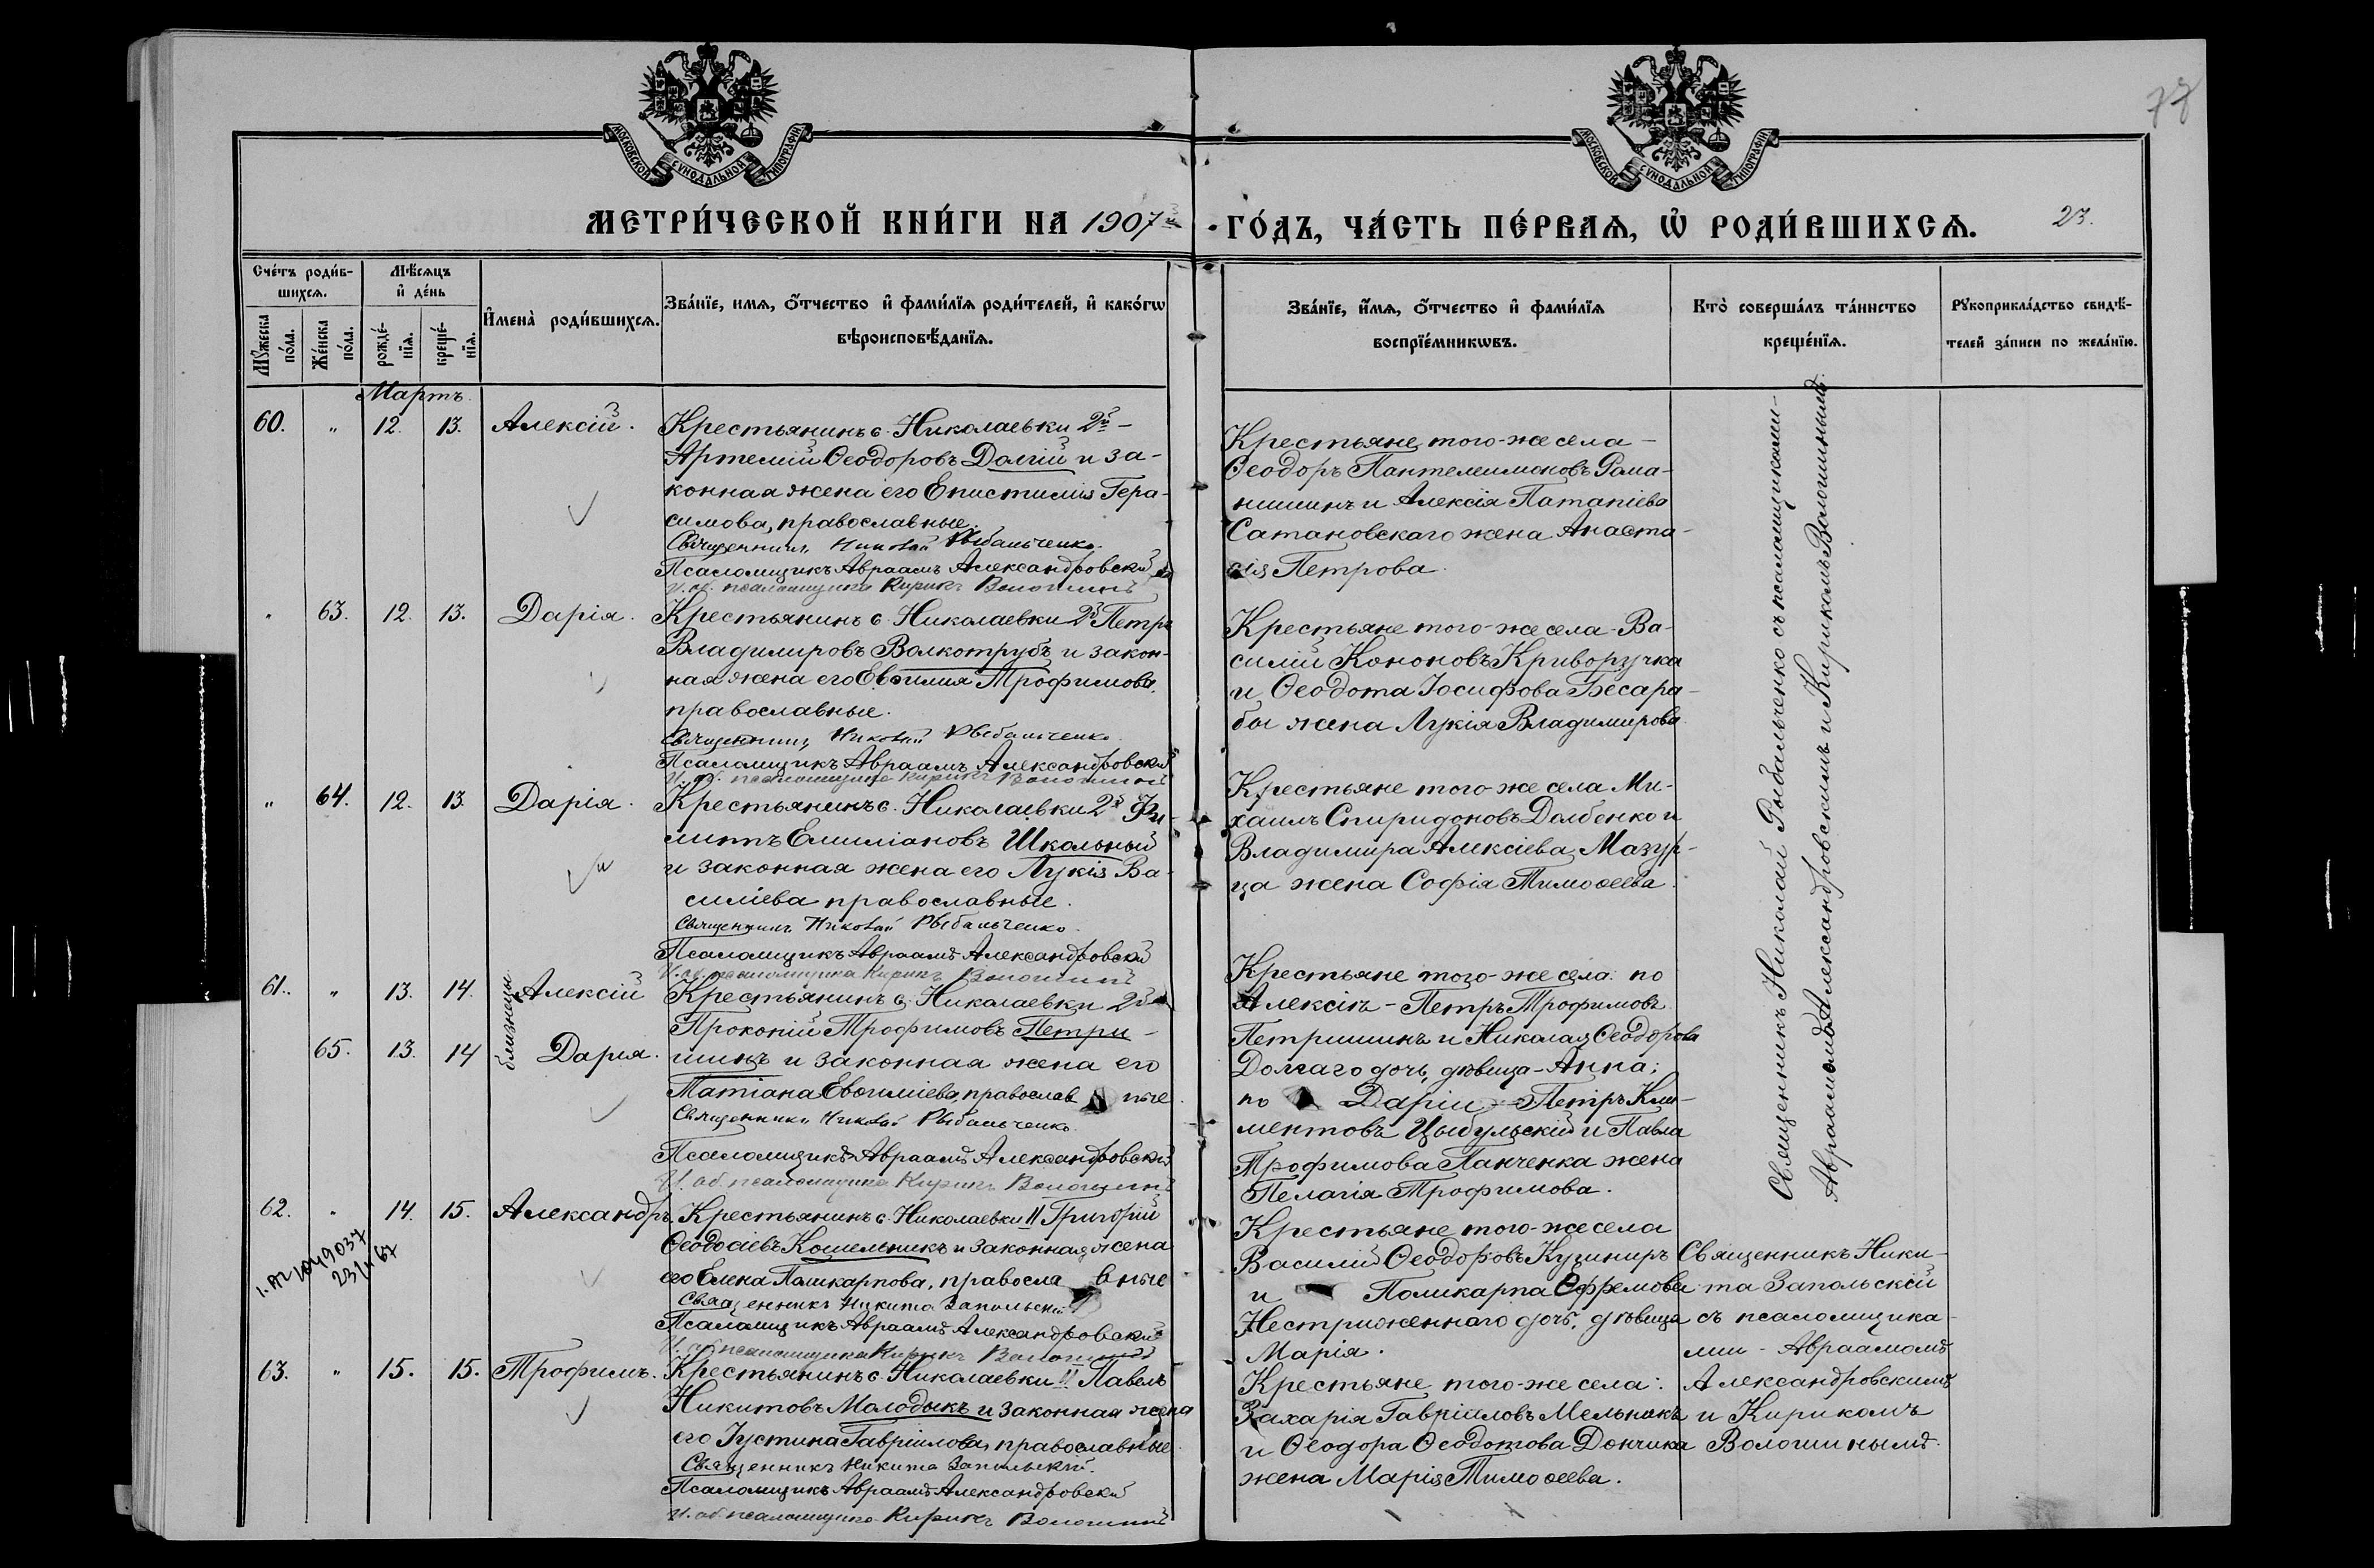 78
МОСКОВСКОЙ СѴНОДАЛЬНОЙ ТИПОГРАФІИ
МОСКОВСКОЙ СѴНОДАЛЬНОЙ ТИПОГРАФІИ
МЕТРИ́ЧЕСКОЙ КНИ́ГИ НА 1907й ГО́ДЪ, ЧА́СТЬ ПЕ́РВАЯ, Ѡ РОДИ́ВШИХСЯ.
23.
Сче́тъ роди́в-
шихся.
Мꙋ́жеска по́ла.
Же́нска по́ла.
Мѣ́сяцъ
и҆ де́нь
рожде́-нїя.
креще́-нїя.
И҆мена̀ роди́вшихся.
Зва́нїе, имя, ѻ҆́тчество и҆ фами́лїя роди́телей, и҆ како́гѡ
вѣроисповѣ́данїя.
Зва́нїе, и҆́мя, ѻ҆́тчество и҆ фами́лїя
воспрїе́мникѡвъ.
Кто̀ соверша́лъ та́инство
креще́нїя.
Рꙋкоприкла́дство свидѣ́-
телей за́писи по жела́нїю.
Мартъ
60. " 12. 13. Алексій.
Крестьянинъ с. Николаевки 2й -
Артемій Ѳеодоровъ Долгій и за-
конная жена его Епистимія Гера-
симова, православные.
Священникъ Николай Рыбальченко.
Псаломщикъ Авраамъ Александровскій
И. об. псаломщика Кирикъ Волошинъ
Крестьяне того-же села -
Ѳеодоръ Пантелеимоновъ Рома-
нишинъ и Алексія Патапіева
Сатановскаго жена Анаста-
сія Петрова.
" 63. 12. 13. Дарія.
Крестьянинъ с. Николаевки 2й Петръ
Владимировъ Волкотрубъ и закон-
ная жена его Евѳимия Трофимова,
православные.
Священникъ Николай Рыбальченко
Псаломщикъ Авраамъ Александровскій
И. об. псаломщика Кирикъ Волошинъ
Крестьяне того-же села - Ва-
силій Кононовъ Криворучка
и Ѳеодота Іосифова Бесара-
бы жена Лукія Владимирова.
" 64. 12. 13. Дарія.
Крестьянинъ с. Николаевки 2й Фи-
липъ Емиліановъ Школьный
и законная жена его Лукія Ва-
силіева православные.
Священникъ Николай Рыбальченко.
Псаломщикъ Авраамъ Александровскій
И. об. псаломщика Кирикъ Волошинъ
Крестьяне того же села Ми-
хаилъ Спиридоновъ Долбенко и
Владимира Алексіева Мазур-
ца жена Софія Тимоѳеева.
61. " 13. 14. Алексій
близнецы
65. 13. 14 Дарія.
Крестьянинъ с. Николаевки 2й
Прокопій Трофимовъ Петри-
шинъ и законная жена его
Татіана Евѳиміева, православные.
Священникъ Николай Рыбальченко.
Псаломщикъ Авраамъ Александровскій
И. об. псаломщика Кирикъ Волошинъ
Крестьяне того-же села: по
Алексію - Петръ Трофимовъ
Петришинъ и Николая Ѳеодорова
Долгаго дочь, дѣвица - Анна;
по Даріи - Петръ Кли-
ментовъ Цыбульскій и Павла
Трофимова Панченка жена
Пелагія Трофимова.
Священникъ Николай Рыбальченко съ псаломщиками -
Авраамомъ Александровскимъ и Кирикомъ Волошинымъ.
62. " 14. 15. Александръ.
Крестьянинъ с. Николаевки II Григорій
Ѳеодосіевъ Кошельникъ и законная жена
его Елена Поликарпова, православные
Священникъ Никита Запольскій
Псаломщикъ Авраамъ Александровскій
И. об. псаломщика Кирикъ Волошинъ
Крестьяне того-же села
Василій Ѳеодоровъ Кушниръ
и Поликарпа Ефремова
Нестриженнаго дочь, дѣвица
Марія.
63. " 15. 15. Трофимъ.
Крестьянинъ с. Николаевки II Павелъ
Никитовъ Молодыкъ и законная жена
его Іустина Гавріилова, православные.
Священникъ Никита Запольскій.
Псаломщикъ Авраамъ Александровскій
И. об. псаломщика Кирикъ Волошинъ
Крестьяне того-же села:
Захарія Гавріиловъ Мельникъ
и Ѳеодора Ѳеодотова Дончика
жена Марія Тимоѳеева.
Священникъ Ники-
та Запольскій
съ псаломщика-
ми - Авраамомъ
Александровскимъ
и Кирикомъ
Волошинымъ.